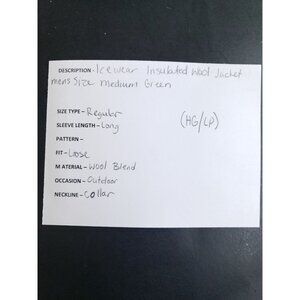 DESCRIPTION - Icewear Insulated Wool Jacket
mens Size medium Green
SIZE TYPE - Regular
SLEEVE LENGTH - Long
(HG/LP)
PATTERN -
FIT - Loose
MATERIAL - Wool Blend
OCCASION - Outdoor
NECKLINE - Collar